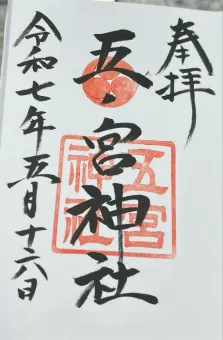 奉拝
五ノ宮神社
五宮神社
令和七年五月十六日